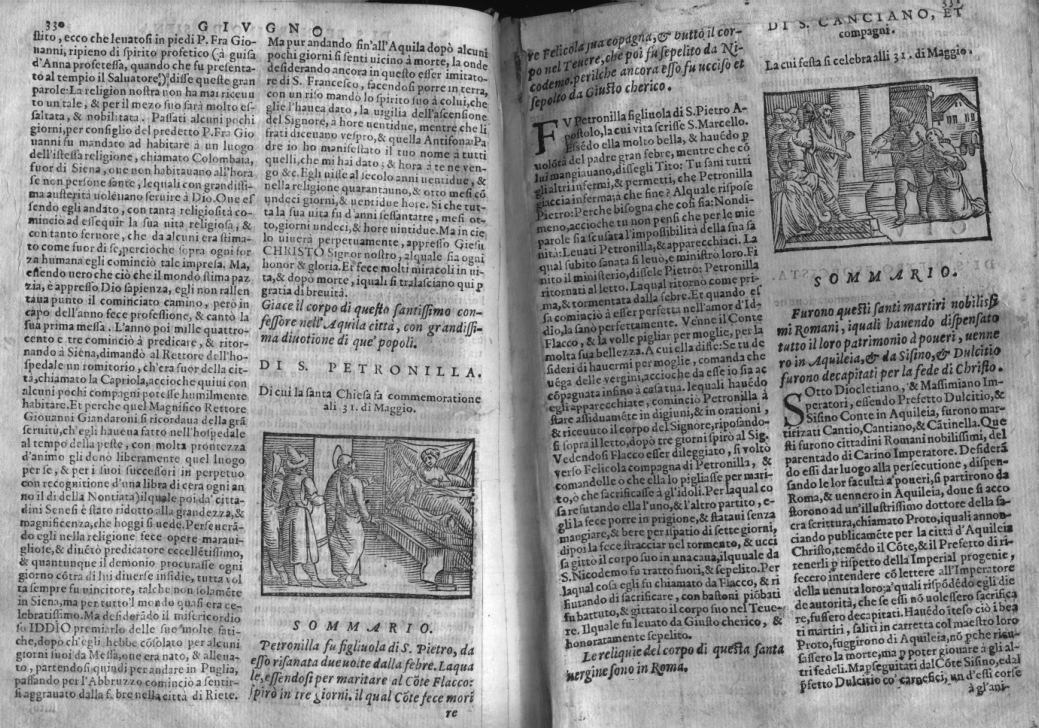 330
GIVGNO
stito, ecco che leuatosi in piedi P. Fra Gio-
uanni, ripieno di spirito profetico (à guisa
d'Anna profetessa, quando che fu presenta-
to al tempio il Saluatore) disse queste gran
parole: La religion nostra non ha mai riceuu
to un tale, & per il mezo suo sarà molto es-
saltata, & nobilitata. Passati alcuni pochi
giorni, per consiglio del predetto P. Fra Gio
uanni fu mandato ad habitare à un luogo
dell'istessa religione, chiamato Colombaia,
fuor di Siena, oue non habitauano all'hora
se non persone sante, lequali con grandissi-
ma austerità uoleuano seruire à Dio. Oue es
sendo egli andato, con tanta religiosità co-
minciò ad essequir la sua uita religiosa, &
con tanto feruore, che da alcuni era stima-
to come fuor di se, percioche sopra ogni for
za humana egli cominciò tale impresa. Ma,
essendo uero che ciò che il mondo stima paz
zia, è appresso Dio sapienza, egli non rallen
taua punto il cominciato camino, però in
capo dell'anno fece professione, & cantò la
sua prima messa. L'anno poi mille quattro-
cento e tre cominciò à predicare, & ritor-
nando à Siena, dimandò al Rettore dell'ho-
spedale un romitorio, ch'era fuor della cit-
tà, chiamato la Capriola, accioche quiui con
alcuni pochi compagni potesse humilmente
habitare. Et perche quel Magnifico Rettore
Giouanni Giandaroni si ricordaua della grã
seruitù, ch'egli haueua fatto nell'hospedale
al tempo della peste, con molta prontezza
d'animo gli donò liberamente quel luogo
per se, & per i suoi successori in perpetuo
con recognitione d'una libra di cera ogni an
no il dì della Nontiata) ilquale poi da' citta-
dini Senesi è stato ridotto alla grandezza, &
magnificenza, che hoggi si uede. Perseuerã-
do egli nella religione fece opere maraui-
gliose, & diuẽtò predicatore eccellẽtissimo,
& quantunque il demonio procurasse ogni
giorno cõtra di lui diuerse insidie, tutta uol
ta sempre fu uincitore, talche non solamẽte
in Siena, ma per tutto'l mondo quasi era ce-
lebratissimo. Ma desiderãdo il misericordio
so IDDIO premiarlo delle sue molte fati-
che, dopo ch'egli hebbe cõsolato per alcuni
giorni suoi da Messa, oue era nato, & alleua-
to, partendosi quindi per andare in Puglia,
passando per l'Abbruzzo cominciò a sentir-
si aggrauato dalla febre nella città di Riete.
Ma pur andando sin'all'Aquila dopò alcuni
pochi giorni si sentì uicino à morte, la onde
desiderando ancora in questo esser imitato-
re di S. Francesco, facendosi porre in terra,
con un riso mandò lo spirito suo à colui, che
glie l'hauea dato, la uigilia dell'ascensione
del Signore, à hore uentidue, mentre che li
frati diceuano vespro, & quella Antifona: Pa
dre io ho manifestato il tuo nome à tutti
quelli, che mi hai dato; & hora à te ne ven-
go &c. Egli uisse al secolo anni uentidue, &
nella religione quarantauno, & otto mesi cõ
undeci giorni, & uentidue hore. Si che tut-
ta la sua uita fu d'anni sessantatre, mesi ot-
to, giorni undeci, & hore uintidue. Ma in cie
lo uiuerà perpetuamente, appresso Giesu
CHRISTO Signor nostro, alquale sia ogni
honor & gloria. Ei fece molti miracoli in ui-
ta, & dopò morte, iquali si tralasciano qui p
gratia di breuità.
Giace il corpo di questo santissimo con-
fessore nell'Aquila città, con grandissi-
ma diuotione di que' popoli.
DI S. PETRONILLA.
Di cui la santa Chiesa fa commemoratione
alli 31. di Maggio.
SOMMARIO.
Petronilla fu figliuola di S. Pietro, da
esso risanata due uolte dalla febre. Laqua
le, essendosi per maritare al Cõte Flacco:
spirò in tre giorni. il qual Cõte fece mori
re
331
re Felicola sua cõpagna, & buttò il cor-
po nel Teuere, che poi fu sepelito da Ni-
codemo. perilche ancora esso fu ucciso et
sepolto da Giusto cherico.
FV Petronilla figliuola di S. Pietro A-
postolo, la cui vita scrisse S. Marcello.
Essẽdo ella molto bella, & hauẽdo p
uolõtà del padre gran febre, mentre che cõ
lui mangiauano, dissegli Tito: Tu sani tutti
gli altri infermi, & permetti, che Petronilla
giaccia inferma; à che fine? Alquale rispose
Pietro: Perche bisogna che così sia: Nondi-
meno, accioche tu non pensi che per le mie
parole sia scusata l'impossibilità della sua sa
nità: Leuati Petronilla, & apparecchiaci. La
qual subito sanata si leuò, e ministrò loro. Fi
nito il ministerio, dissele Pietro: Petronilla
ritornati al letto. Laqual ritornò come pri-
ma, & tormentata dalla febre. Et quando es
sa cominciò à esser perfetta nell'amor d'Id-
dio, la sanò perfettamente. Venne il Conte
Flacco, & la volle pigliar per moglie, per la
molta sua bellezza. A cui ella disse: Se tu de
sideri di hauermi per moglie, comanda che
uẽga delle vergini, accioche da esse io sia ac
cõpagnata insino à casa tua. lequali hauẽdo
egli apparecchiate, cominciò Petronilla à
stare assiduamẽte in digiuni, & in orationi,
& riceuuto il corpo del Signore, riposando-
si sopra il letto, dopò tre giorni spirò al Sig.
Vedendosi Flacco esser dileggiato, si voltò
verso Felicola compagna di Petronilla, &
comandolle ò che ella lo pigliasse per mari-
to, ò che sacrificasse à gl'idoli. Per laqual co
sa refutando ella l'uno, & l'altro partito, e-
gli la fece porre in prigione, & stataui senza
mangiare, & bere per ispatio di sette giorni,
dipoi la fece stracciar nel tormento, & ucci
sa gittò il corpo suo in una caua, ilquale da
S. Nicodemo fu tratto fuori, & sepelito. Per
laqual cosa egli fu chiamato da Flacco, & ri
fiutando di sacrificare, con bastoni piõbati
fu battuto, & gittato il corpo suo nel Teue-
re. Ilquale fu leuato da Giusto cherico, &
honoramente sepelito.
Le reliquie del corpo di questa santa
uergine sono in Roma.
DI S. CANCIANO, ET
compagni.
La cui festa si celebra alli 31. di Maggio.
SOMMARIO.
Furono questi santi martiri nobilissi
mi Romani, iquali hauendo dispensato
tutto il loro patrimonio à poueri, uenne
ro in Aquileia, & da Sisino, & Dulcitio
furono decapitati per la fede di Christo.
SOtto Diocletiano, & Massimiano Im-
peratori, essendo Prefetto Dulcitio, &
Sisino Conte in Aquileia, furono mar-
tirizati Cantio, Cantiano, & Cãtinella. Que
sti furono cittadini Romani nobilissimi, del
parentado di Carino Imperatore. Desiderã
do essi dar luogo alla persecutione, dispen-
sando le lor facultà a' poueri, si partirono da
Roma, & uennero in Aquileia, doue si acco
storono ad un'illustrissimo dottore della sa-
cra scrittura, chiamato Proto, iquali annon-
ciando publicamẽte per la città d'Aquileia
Christo, temẽdo il Cõte, & il Prefetto di ri-
tenerli p rispetto della Imperial progenie,
fecero intendere cõ lettere all'Imperatore
della uenuta loro; a' quali rispõdẽdo egli die
de autorità, che se essi nõ uolessero sacrifica
re, fussero decapitati. Hauẽdo ĩteso ciò i bea
ti martiri, saliti in carretta col maestro loro
Proto, fuggirono di Aquileia, nõ pche ricu-
sassero la morte, ma p poter giouare à gli al-
tri fedeli. Ma pseguitati dal Cõte Sisino, e dal
pfetto Dulcitio co' carnefici, un d'essi corse
à gl'ani-